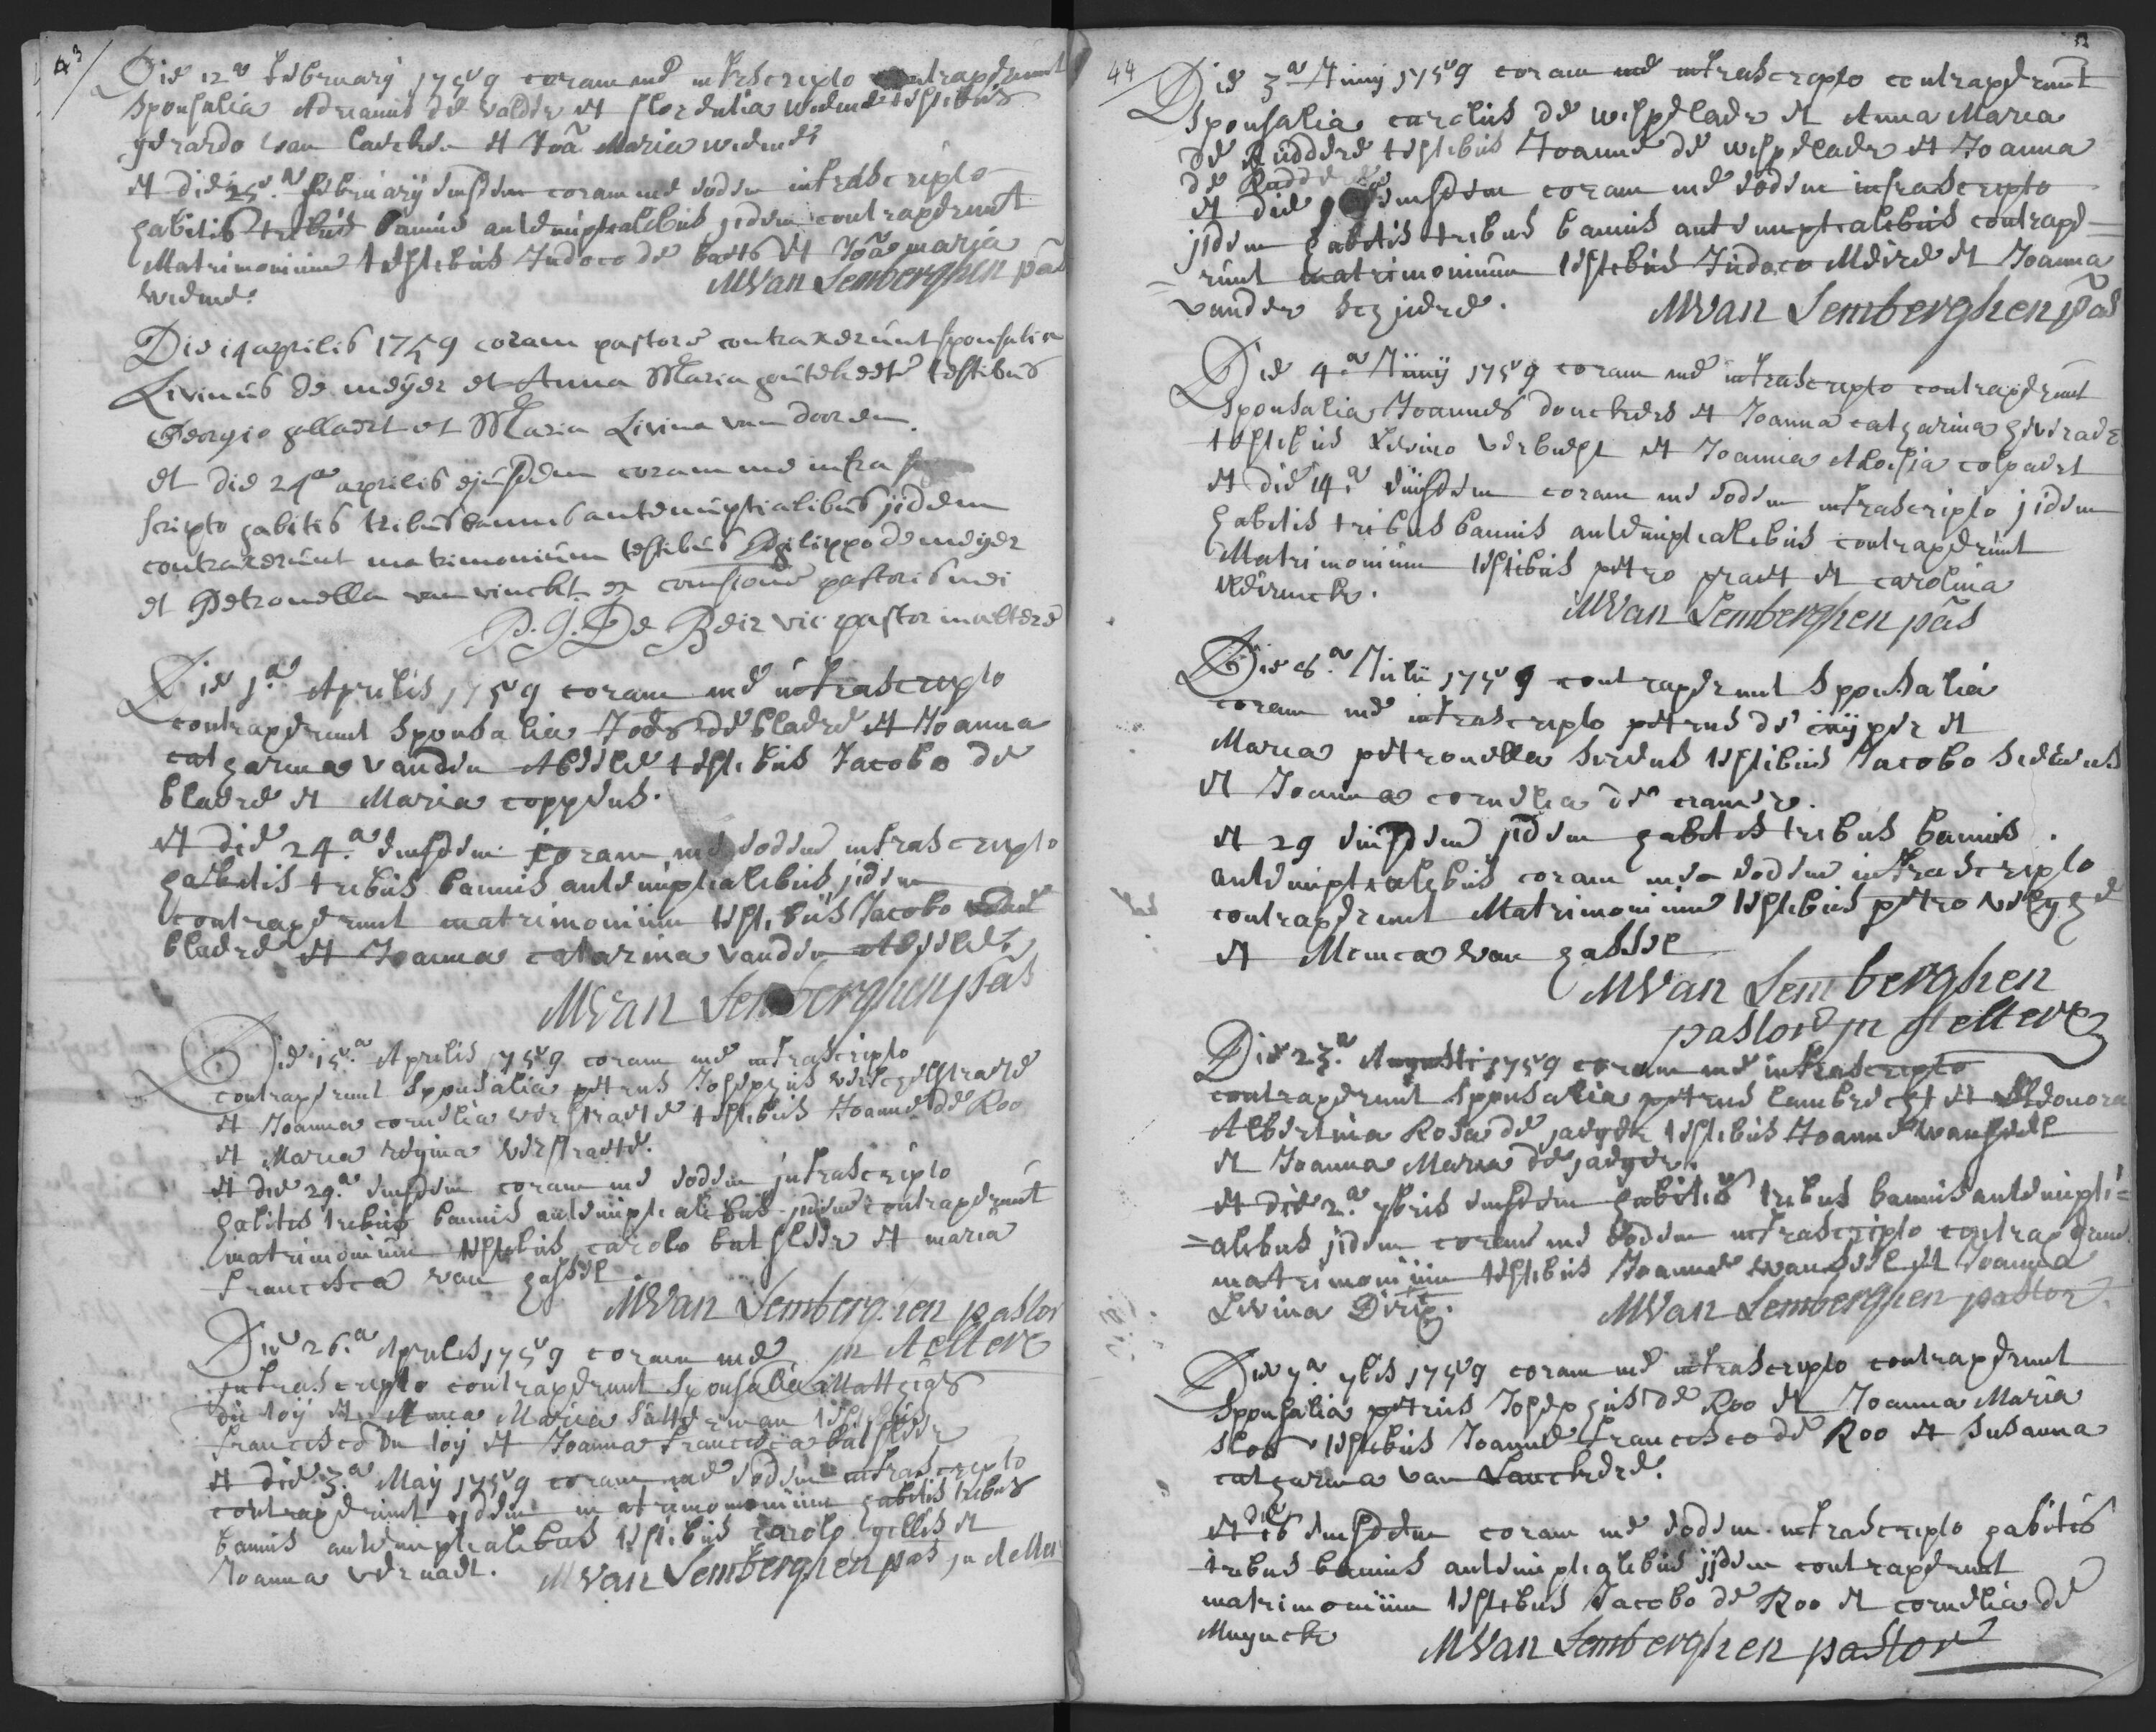 43
Die 12a february 1759 coram me infrascripto contraxerunt
sponsalia Adrianus de valder et florentia wieme testibus
gerardo van laecken et Joã Maria wieme
et die 25.a february eiusdem coram me eodem infrascripto
habitis tribus bannis antenuptialibus jidem contraxerunt
Matrimonium testibus Judoco de baets et Joã maria
wieme.
MVan Lemberghen pãs
Die 14 aprilis 1759 coram pastore contraxerunt sponsalia
Livinus de meyer et Anna Maria testibus
Georgio gellaert et Maria Livina van dooren.
et die 24a aprilis ejusdem coram me infra
scripto habitis tribus bannis antenuptialibus jidem
contraxerunt matrimonium testibus Philippo de meyer
et Petronella van vinckt ex comissione pastoris mei
P.J. De Beir vic. pastor in aeltere
Die 1.a Aprilis 1759 coram me infrascripto
contraxerunt sponsalia Joes de blaere et Joanna
catharina vanden Abeele testibus Jacobo de
blaere et Maria coppens.
et die 24.a eiusdem coram me eodem infrascripto
habitis tribus bannis antenuptialibus jidem
contraxerunt matrimonium testibus Jacobo
blaere et Joanna catarina vanden Abeele
MVan Lemberghen pas
Die 15.a Aprilis 1759 coram me infrascripto
contraxerunt sponsalia petrus Josephus
et Joanna cornelia verstraete testibus Joanne de Roo
et Maria regina verstraete.
et die 29.a eiusdem coram me eodem jnfrascripto
habitis tribus bannis antenuptialibus jidem contraxerunt
matrimonium testibus carolo batsleer et maria
francisca van hassel
MVan Lemberghen pastor
in Aeltere
Die 26.a Aprilis 1759 coram me
jnfrascripto contraxerunt sponsalia Matthias
du loy et Anna Maria testibus
francisco du loy et Joanna francisca batsleer
et die 3.a May 1759 coram me eodem infrascripto
contraxerunt ijdem matrimonium habitis tribus
bannis antenuptialibus testibus carolo gillis et
Joanna vernaet.
MVan Lemberghen pas jn Aelter
44
Die 3a Junij 1759 coram me infrascripto contraxerunt
sponsalia carolus de wispelaer et Anna Maria
de Ruddere testibus Joanne de wispelaer et Joanna
de Rudder
et die eiusdem coram me eodem infrascripto
jidem habitis tribus bannis antenuptialibus contraxe=
=runt matrimonium testibus Judoco Meire et Joanna
vander
MVan Lemberghen pãs
Die 4.a Junij 1759 coram me infrascripto contraxerunt
sponsalia Joannes donckers et Joanna catharina
testibus Livino verbiest et Joanna Aloisia colpaert
et die 14.a eiusdem coram me eodem infrascripto jidem
habitis tribus bannis antenuptialibus contraxerunt
Matrimonium testibus petro praet et carolina

MVan Lemberghen pãs
Die 8.a Julii 1759 contraxerunt sponsalia
coram me infrascripto petrus de cuyper et
Maria petronella sierens testibus Jacobo sierens
et Joanna cornelia de cramer.
et 29 eiusdem jidem habitis tribus bannis
antenuptialibus coram me eodem infrascripto
contraxerunt Matrimonium testibus petro
et van hassel
MVan Lemberghen
pastor jn Aeltere
Die 23.a Augusti 1759 coram me infrascripto
contraxerunt sponsalia petrus lambrecht et Eleonora
Albertina Rosa de jaeger testibus Joanne
et Joanna Maria de jaeger.
et die 2.a 7bris eiusdem habitis tribus bannis antenupti=
=alibus jidem coram me eodem infrascripto contraxerunt
matrimonium testibus Joanne et Joanna
Livina Dirix.
MVan Lemberghen pastor
Die 7.a 7bis 1759 coram me infrascripto contraxerunt
sponsalia petrus Josephus de Roo et Joanna Maria
testibus Joanne francisco de Roo et susanna
catharina van
et die 16 eiusdem coram me eodem infrascripto habitis
tribus bannis antenuptialibus jidem contraxerunt
matrimonium testibus Jacobo de Roo et cornelia de
Muynck
MVan Lemberghen pastor